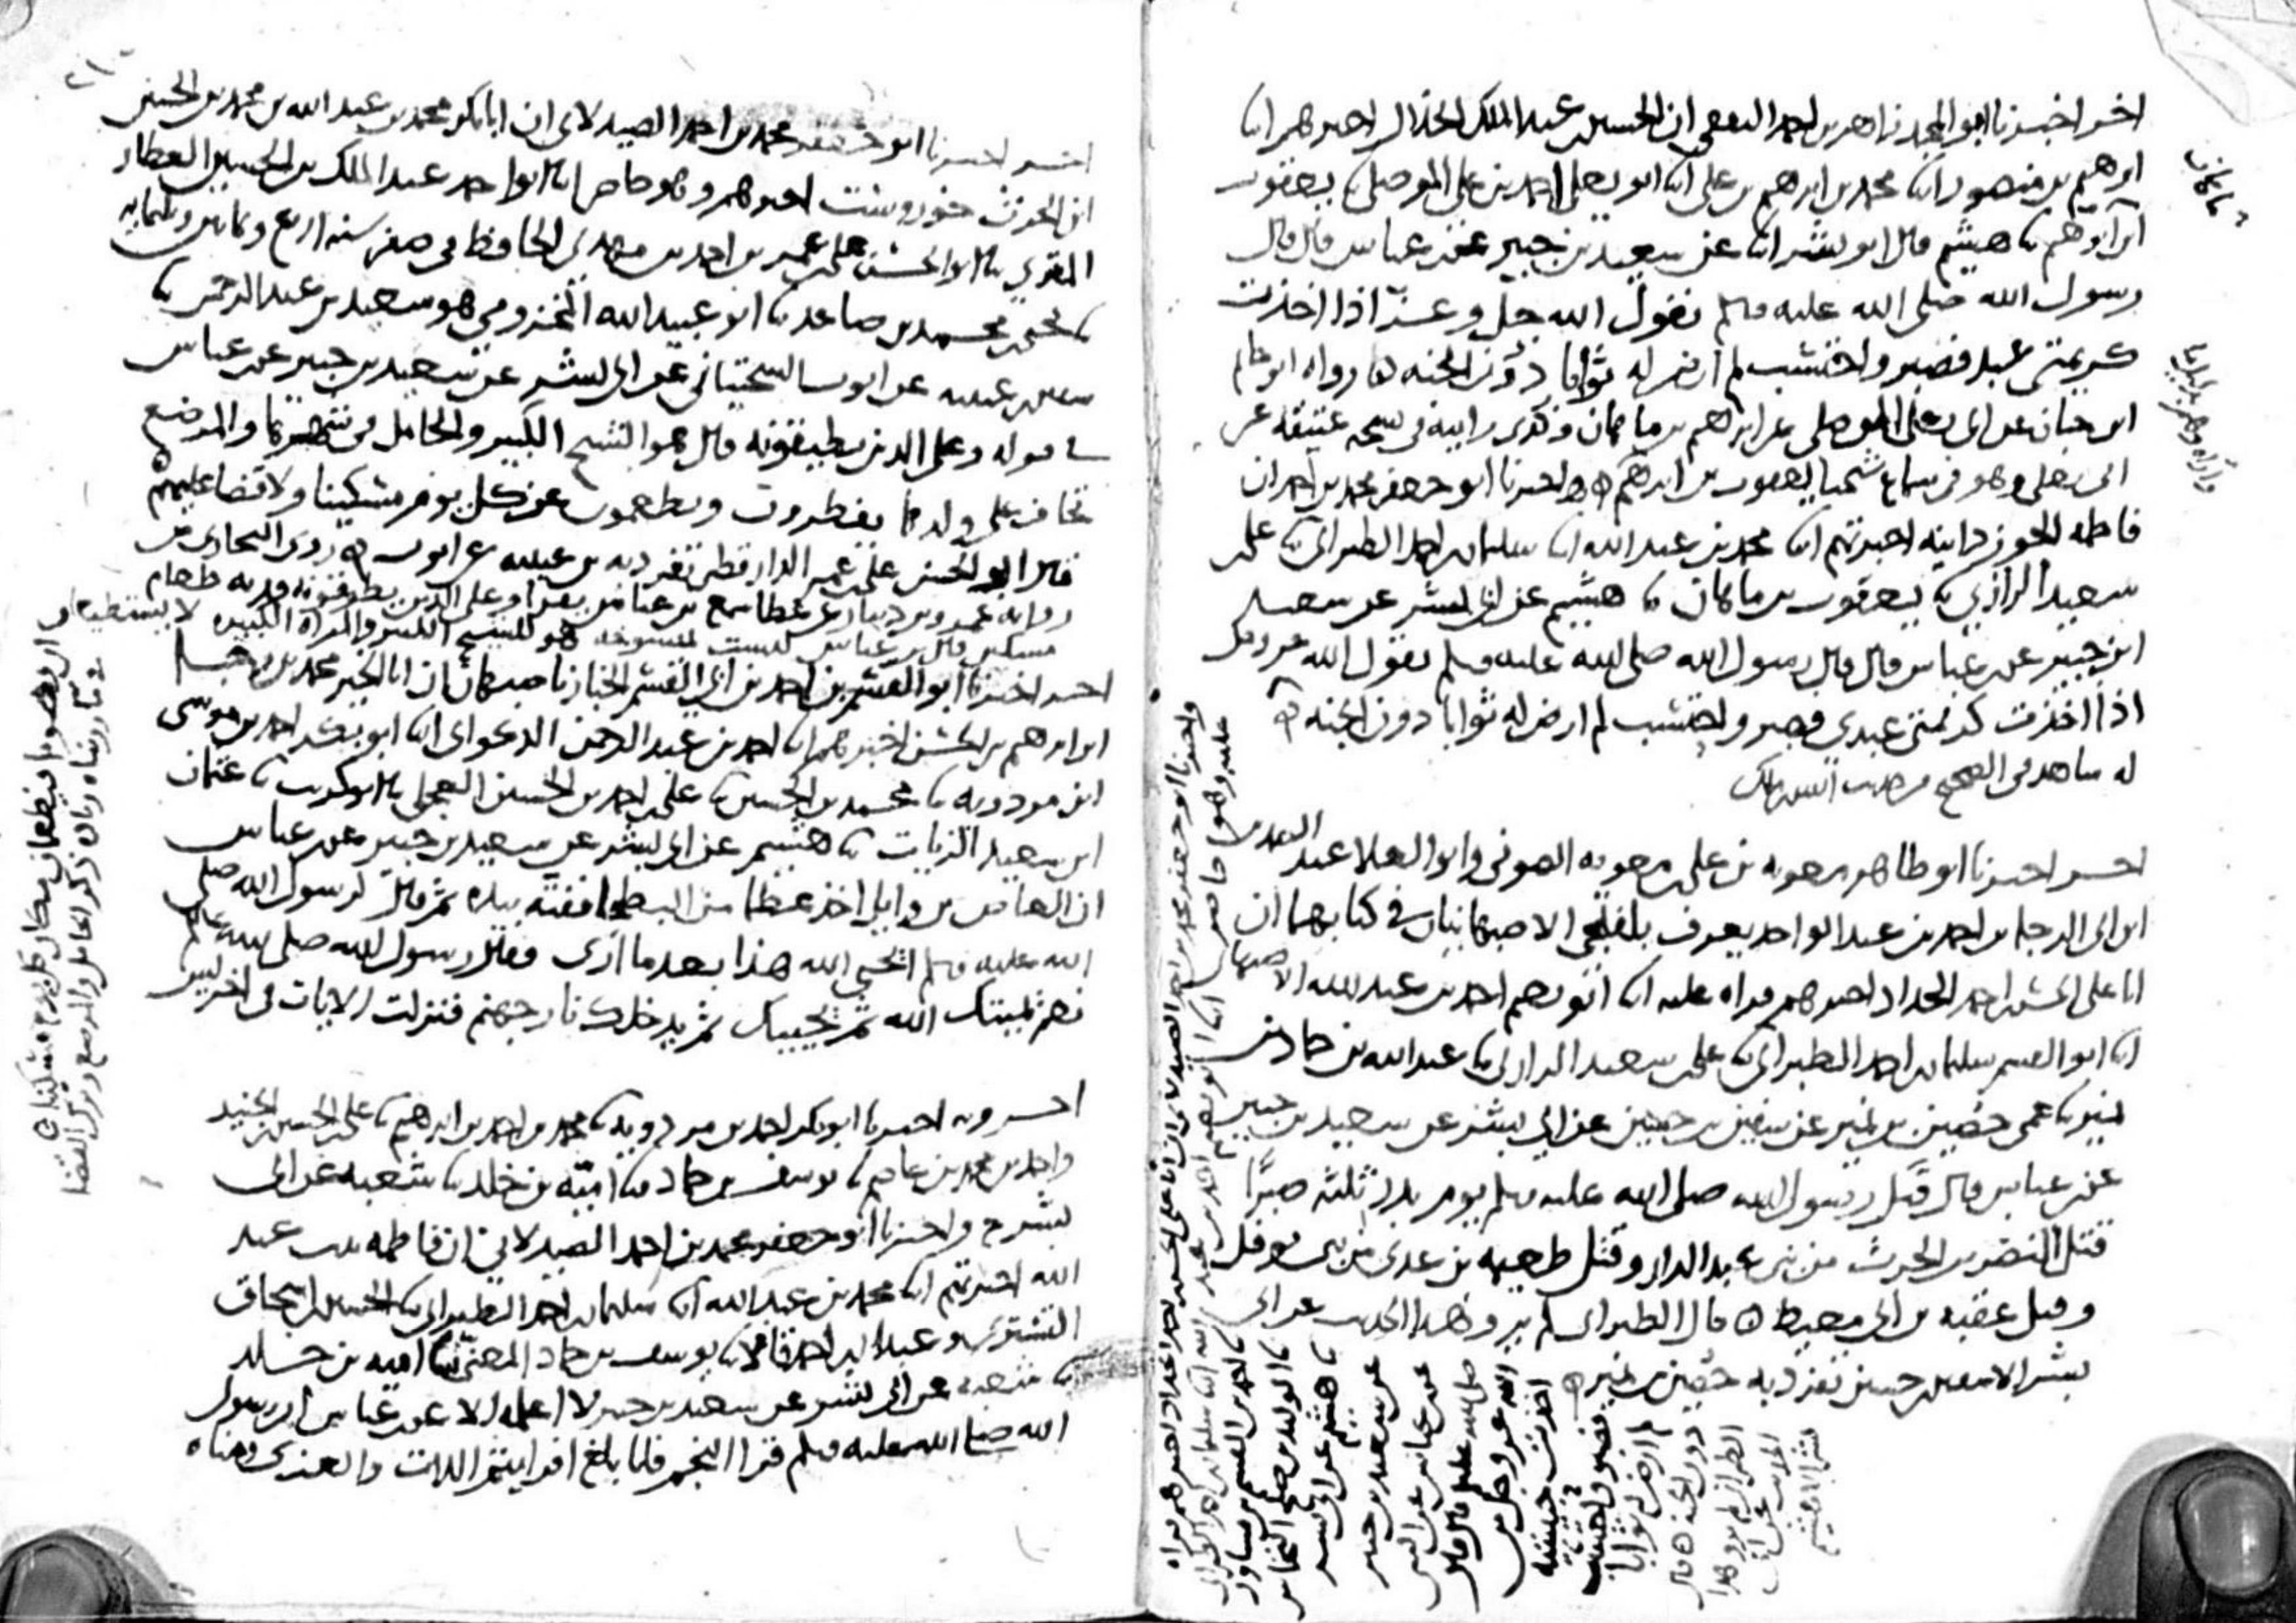 اخر اخبرنا ابو المجد زاهر بن احمد الثقفي ان الحسين بن عبد الملك الخلال اخبرهم ابنا
ابرهيم بن منصور ابنا محمد بن ابرهيم بن علي ابنا ابو يعلى احمد بن علي الموصلي ثنا يعقوب
ثنا هشيم قال ابو بشر ابنا عن سعيد بن جبير عن بن عباس قال قال
رسول الله صلى الله عليه وسلم يقول الله جل وعز اذا اخذت
كريمتي عبد فصبر واحتسب لم ارض له ثوابا دون الجنه رواه ابو حاتم
ابن حبان عن ابي يعلى الموصلي عن ابرهيم بن ماهان وكذى رايته في نسخه عتيقه عن
ابي يعلى وهو في سماع شيخنا يعقوب بن ابرهيم واخبرنا ابو جعفر محمد بن احمد ان
فاطمه الجوزدانيه اخبرتهم ابنا محمد بن عبد الله ابنا سليمان بن احمد الطبراني ثنا علي بن
سعيد الرازي ثنا يعقوب بن ماهان ثنا هشيم عن ابي بشر عن سعيد
ابن جبير عن بن عباس قال قال رسول الله صلى الله عليه وسلم يقول الله عز وجل
اذا اخذت كريمتي عبدي فصبر واحتسب لم ارض له ثوابا دون الجنه
له شاهد في الصحيح من حديث انس بن مالك
اخر اخبرنا ابو طاهر معويه بن علي بن معويه الصوفي وابو العلا عبد
ابن ابي الرجا بن احمد بن عبد الواحد يعرف بلفلجي الاصبهانيان في كتابهما ان
ابا علي الحسن بن احمد الحداد اخبرهم قراه عليه ابنا ابو نعيم احمد بن عبد الله الاصبهاني
ابنا ابو القسم سليمان بن احمد الطبراني ثنا علي بن سعيد الرازي ثنا عبد الله بن حماد بن
نمير ثنا عمي حصين بن نمير عن سفين بن حسين عن ابي بشر عن سعيد بن جبير
عن بن عباس قال قتل رسول الله صلى الله عليه وسلم يوم بدر ثلثه صبرا
قتل النضر بن الحرث من بني عبد الدار وقتل طعيمه بن عدي من بني نوفل
وقتل عقبه بن ابي معيط قال الطبراني لم يرو هذا الحديث عن ابي
بشر الا سفين بن حسين تفرد به حصين بن نمير
واخبرنا ابو جعفر محمد بن احمد الصيدلاني ان ابا علي الحسن بن احمد الحداد اخبرهم قراه
عليه وهو حاضر ابنا ابو نعيم احمد بن عبد الله ابنا سليمان بن احمد الطبراني
ثنا احمد بن القسم بن مساور
ثنا الوليد بن صالح النخاس
ثنا هشيم عن ابي بشر
عن سعيد بن جبير
عن بن عباس عن النبي
صلى الله عليه قال قال
الله عز وجل من
اخذت حبيبتيه
فصبر واحتسب
لم ارض له ثوابا
دون الجنه قال
الطبراني لم يرو هذا
الحديث عن ابي
بشر الا هشيم
اخر اخبرنا ابو جعفر محمد بن احمد الصيدلاني ان ابا بكر محمد بن عبد الله بن محمد بن الحسين
ابن الحرث اخبرهم وهو حاضر ابنا ابو احمد عبد الملك بن الحسين العطار
المقري ثنا ابو الحسن علي بن عمر بن احمد بن مهدي الحافظ في صفر سنه اربع وثمانين وثلثمايه
ثنا يحيى بن محمد بن صاعد ثنا ابو عبيد الله المخزومي هو سعيد بن عبد الرحمن ثنا
سفين بن عيينه عن ايوب السختياني عن ابي بشر عن سعيد بن جبير عن بن عباس
في قوله وعلى الذين يطيقونه قال هو الشيخ الكبير والحامل والمرضع
تخاف على ولدها يفطرون ويطعمون عن كل يوم مسكينا ولا قضا عليهم
قال ابو الحسن علي بن عمر الدارقطني تفرد به بن عيينه عن ايوب روى البخاري من
روايه عمرو بن دينار عن عطا سمع بن عباس يقرا وعلى الذين يطوقونه فديه طعام
مسكين قال بن عباس ليست بمنسوخه هو للشيخ الكبير والمراه الكبيره لا يستطيعان
ان يصوما فيطعمان مكان كل يوم مسكينا
اخر اخبرنا ابو القسم بن احمد بن ابي القسم الخباز باصبهان ان ابا الخير محمد بن رجا
ابن ابرهيم بن الحسن اخبرهم ابنا احمد بن عبد الرحمن الذكواني ابنا ابو بكر احمد بن موسى
ابن مردويه ثنا محمد بن الحسين ثنا علي بن احمد بن الحسين العجلي ثنا ابو كريب ثنا عثمان
ابن سعيد الزيات ثنا هشيم عن ابي بشر عن سعيد بن جبير عن بن عباس
ان العاص بن وايل اخذ عظما من البطحا ففته بيده ثم قال لرسول الله صلى
الله عليه وسلم ايحيي الله هذا بعد ما ارى فقال رسول الله صلى الله عليه
نعم يميتك الله ثم يحييك ثم يدخلك نار جهنم فنزلت الايات في اخر يس
اخر وبه اخبرنا ابو بكر احمد بن مردويه ثنا محمد بن احمد بن ابرهيم ثنا علي بن الحسين بن الجنيد
واحمد بن محمد بن عاصم ثنا يوسف بن حماد ثنا اميه بن خلد ثنا شعبه عن ابي
بشر ح واخبرنا ابو جعفر محمد بن احمد الصيدلاني ان فاطمه بنت عبد
الله اخبرتهم ابنا محمد بن عبد الله ابنا سليمان بن احمد الطبراني ثنا الحسين بن اسحاق
التستري وعبدان بن احمد قالا ثنا يوسف بن حماد المعني ثنا اميه بن خلد
ثنا شعبه عن ابي بشر عن سعيد بن جبير لا اعلمه الا عن بن عباس ان رسول
الله صلى الله عليه وسلم قرا النجم فلما بلغ افرايتم اللات والعزى ومناه